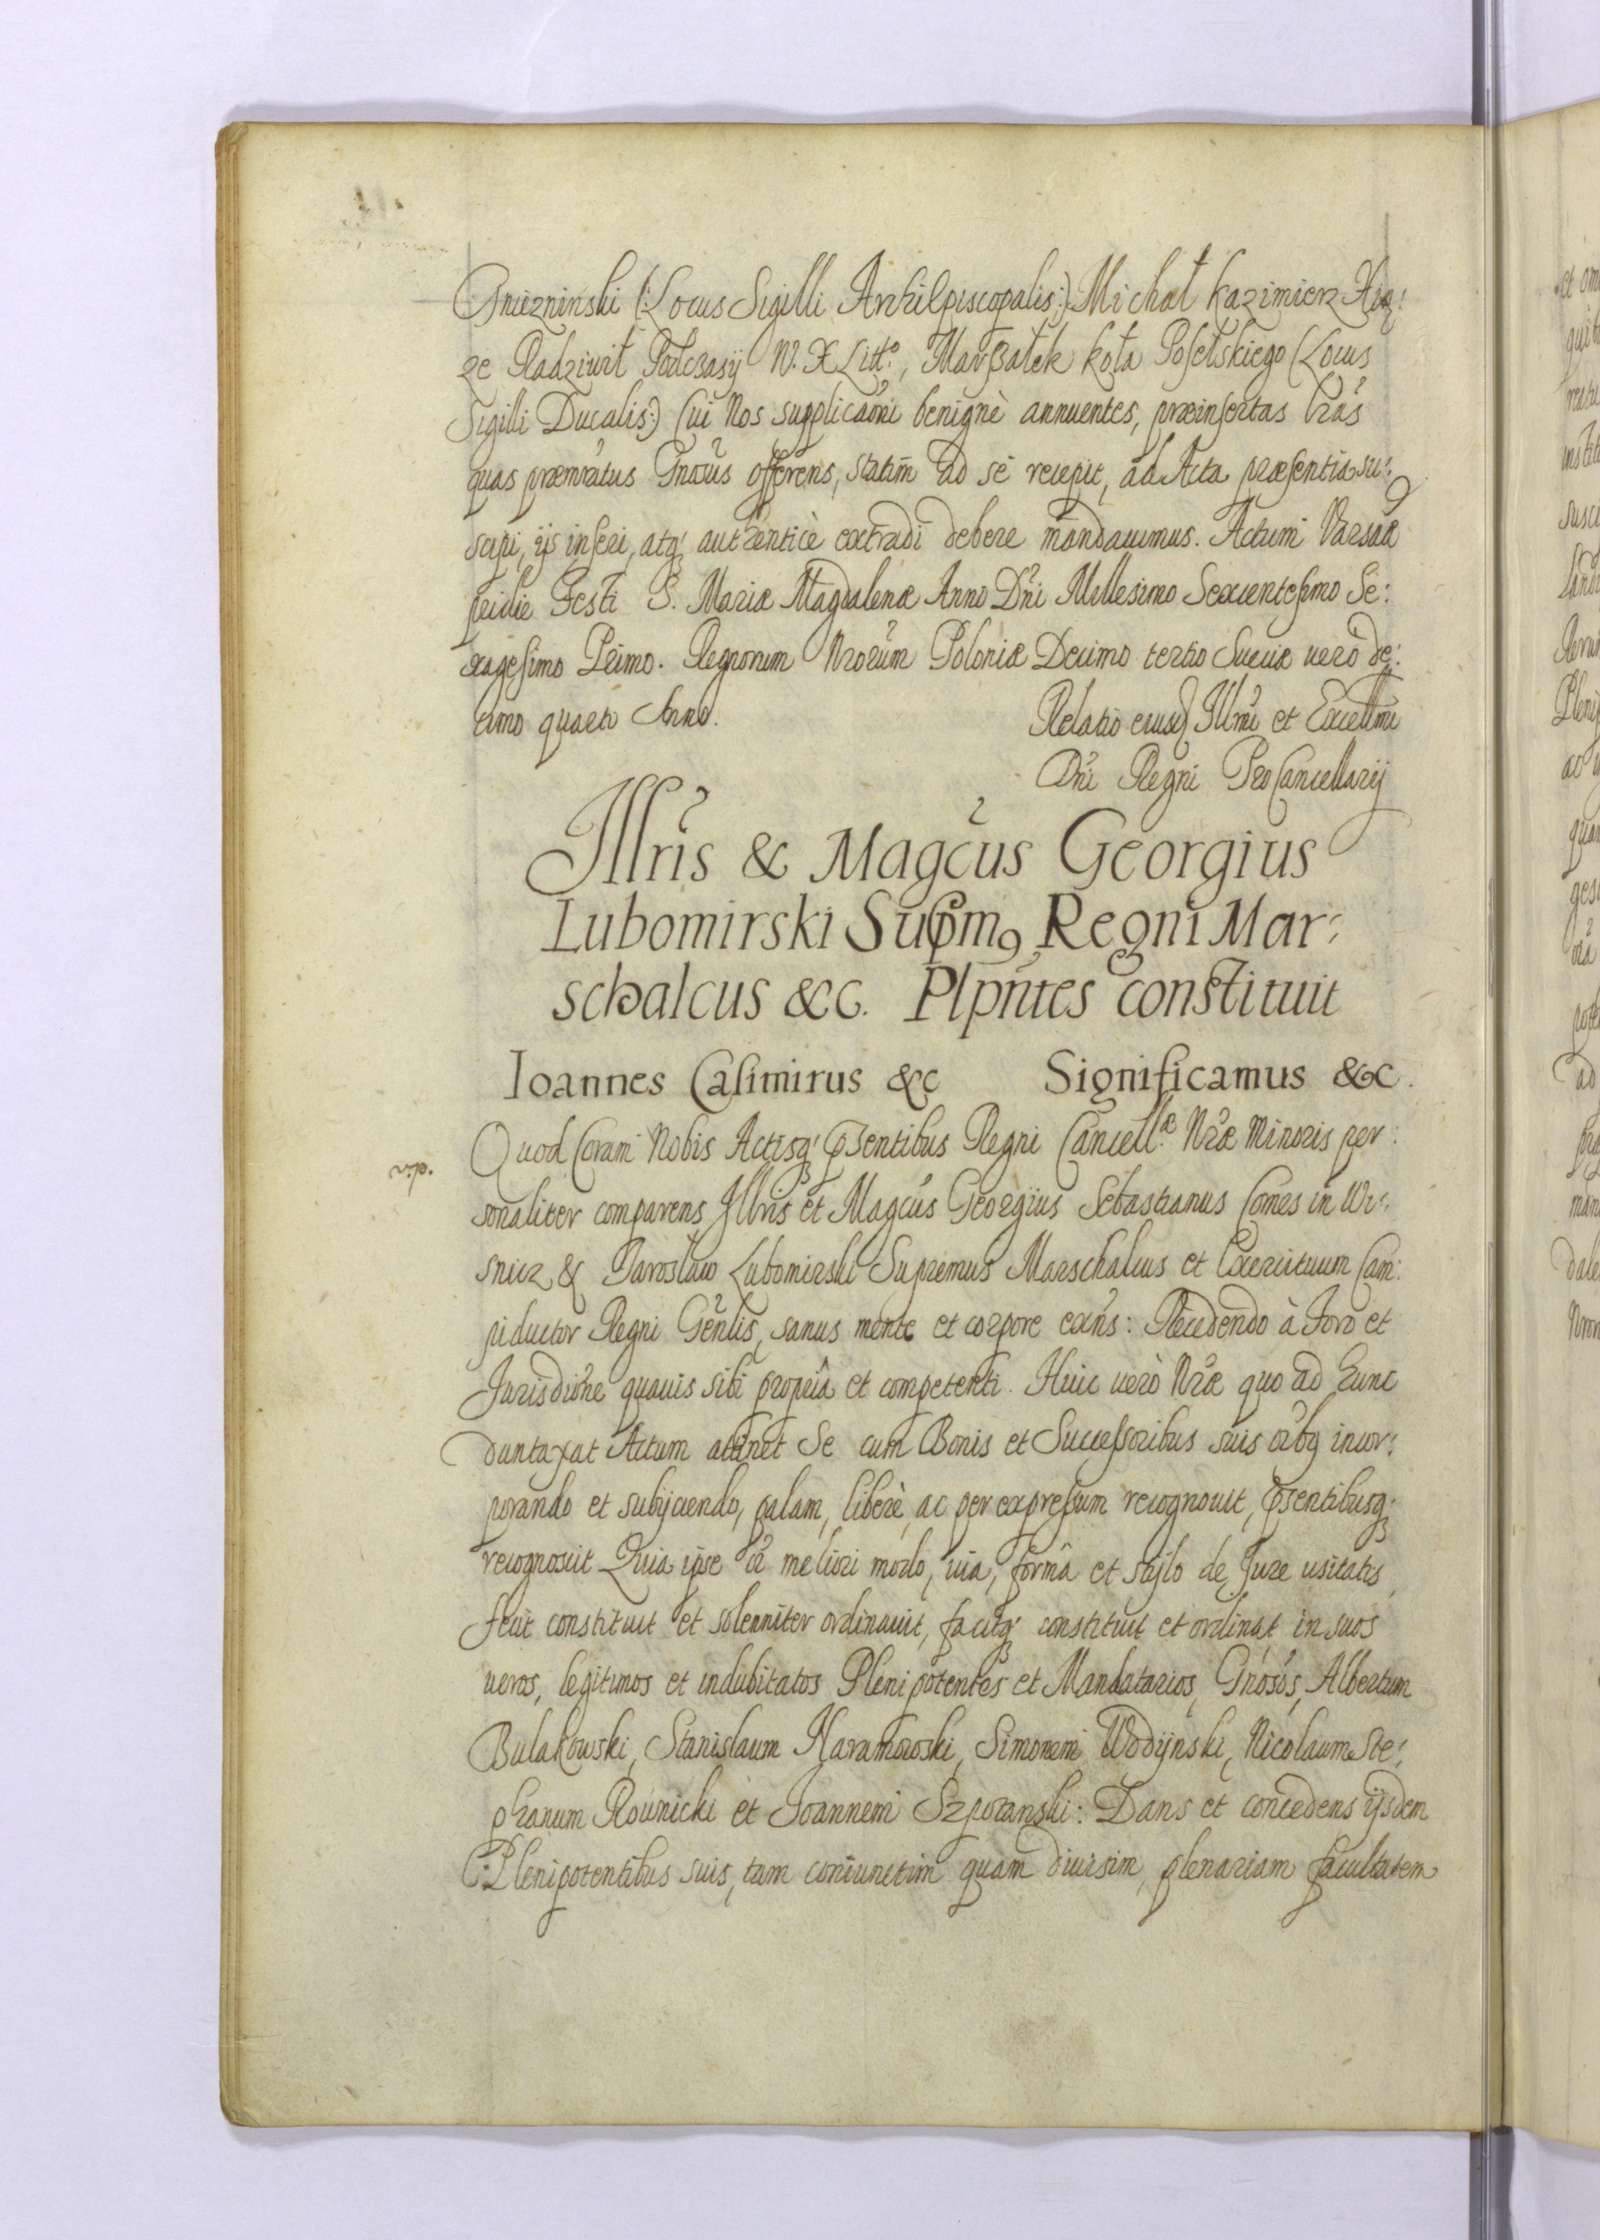 Gniezninski (:Locus Sigilli Archiepiscopalis:) Michał Kazimierz Xią:
ze Radziwił Podczasÿ W. X Litt:, Marszałek koła Poselskiego (Locus
Sigilli Ducalis:) Cui Nos supplicaõni benignè annuentes, præinsertas lrãs
quas præmratus Gnõsus offerens, statim ad sè recepit, ad Acta præsentia su:
scipi, ijs inseri, atq' autenticè extradi debere mandauimus. Actum Varsaæ
pridie Festi S. Mariæ Magdalenæ Anno Dñi Millesimo Sexcentesimo Se:
xagesimo Primo. Regnorum Nrorum Poloniæ Decimo tertio Sueciæ uerò de:
cimo quarto Anno.
Relatio eiusd Illmi et Excellmi
Dñi Regni ProCancellarij
Illris & Magcus Georgius
Lubomirski Supm9 Regni Mar:
schalcus &c. Plpñtes constituit
Ioannes Casimirus &c Significamus &c.
Quod Coram Nobis Actisq' psentibus Regni Cancellæ Nræ Minoris per:
sonaliter comparens Illris et Magcus Georgius Sebastianus Comes in Wi:
snicz & Jarosław Lubomirski Supremus Marschalcus et Exercituum Cam:
piductor Regni Genlis, sanus mente et corpore exñs: Recedendo à Foro et
Jurisdiõne quauis sibi propria et competenti. Huic uerò Nræ quo ad hunc
duntaxat Actum attinet Se cum Bonis et Successoribus suis oibq incor:
porando et subijciendo, palam, liberè, ac per expressum recognouit, psentibusq'
recognoscit Quia ipse oi meliori modo, uia, forma et stylo de Jure usitatis
fecit constituit et solenniter ordinauit, facitq' constituit et ordinat in suos
ueros, legitimos et indubitatos Plenipotentes et Mandatarios, Gñosos, Albertum
Bulakowski, Stanislaum Haramowski, Simonem Wodÿnski, Nicolaum Ste:
phanum Rownicki et Joannem Szporanski: Dans et concedens ijsdem
Plenipotentibus suis, tam coniunctim quam diuisim, plenariam facultatem